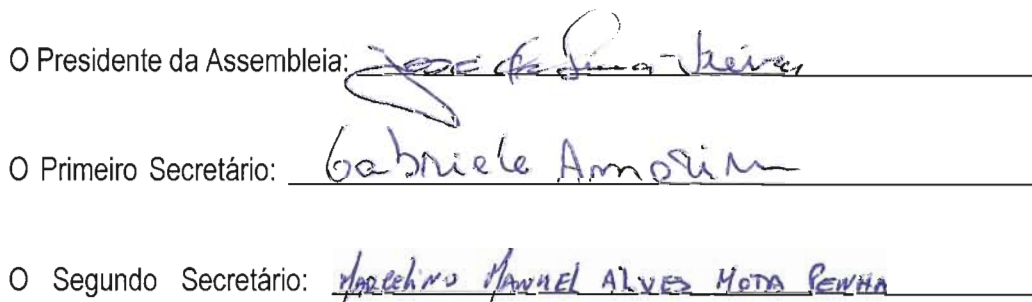 O Presidente da Assembleia: José de Lima Vieira
O Primeiro Secretário: Gabriele Amorim
O Segundo Secretário: Marcelino Manuel Alves Mota Penha